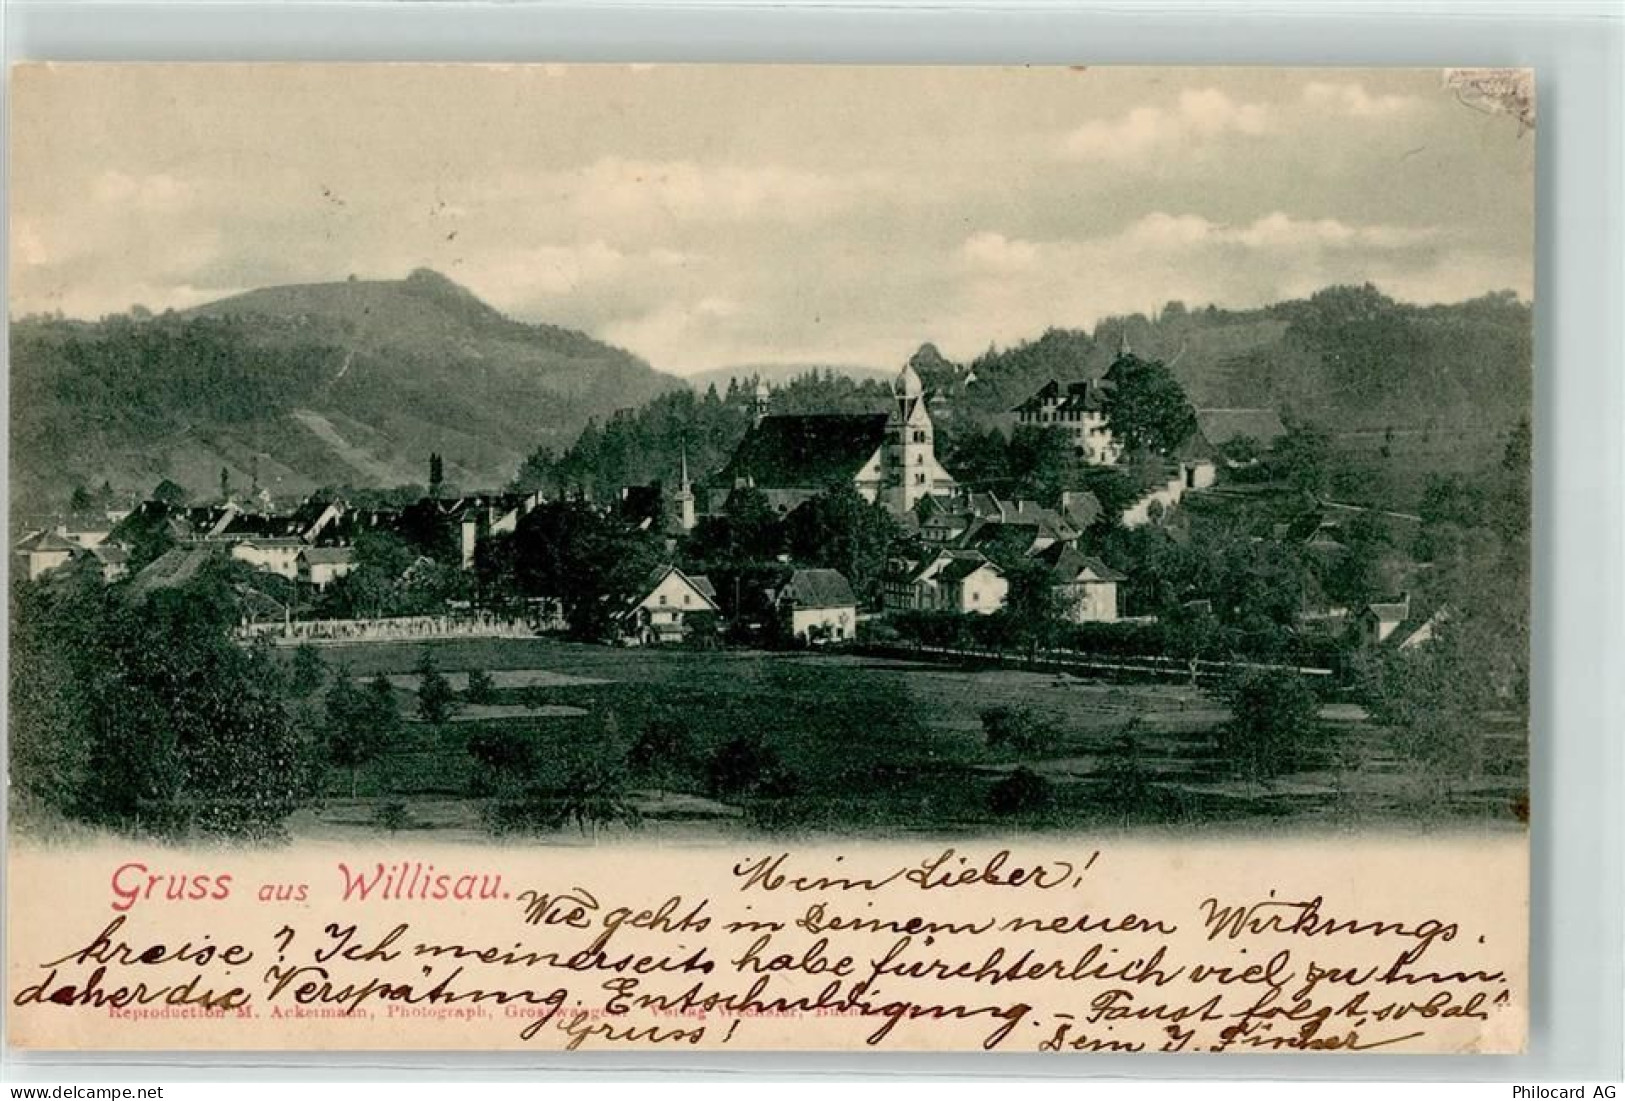 Gruss aus Willisau.
Mein Lieber!
Wie gehts in Deinem neuen Wirkungs-
kreise? Ich meinerseits habe fürchterlich viel zu tun.
daher die Verspätung. Entschuldigung. – Faust folgt sobald
Reproduction M. Ackermann, Photograph, Grosswangen. Verlag Wechsler,
Gruss! Dein J.
Philocard AG